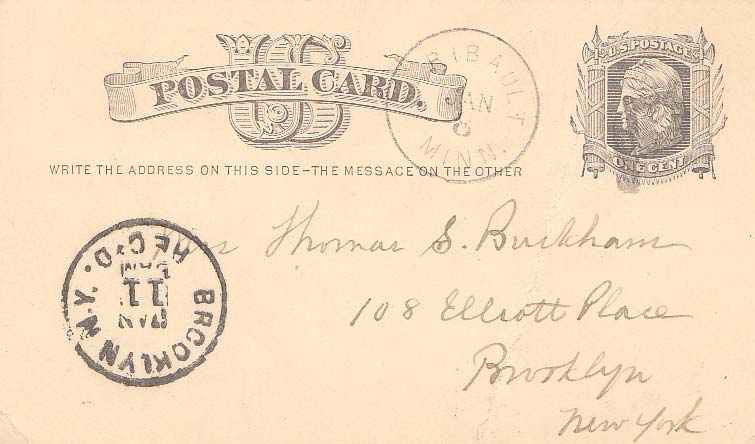 US
POSTAL CARD.
U.S. POSTAGE
ONE CENT
RIBAULT
JAN
6
MINN.
WRITE THE ADDRESS ON THIS SIDE-THE MESSAGE ON THE OTHER
BROOKLYN N.Y.
REC'D.
JAN
11
AM
Mrs Thomas S. Buckham
108 Elliott Place
Brooklyn
New York